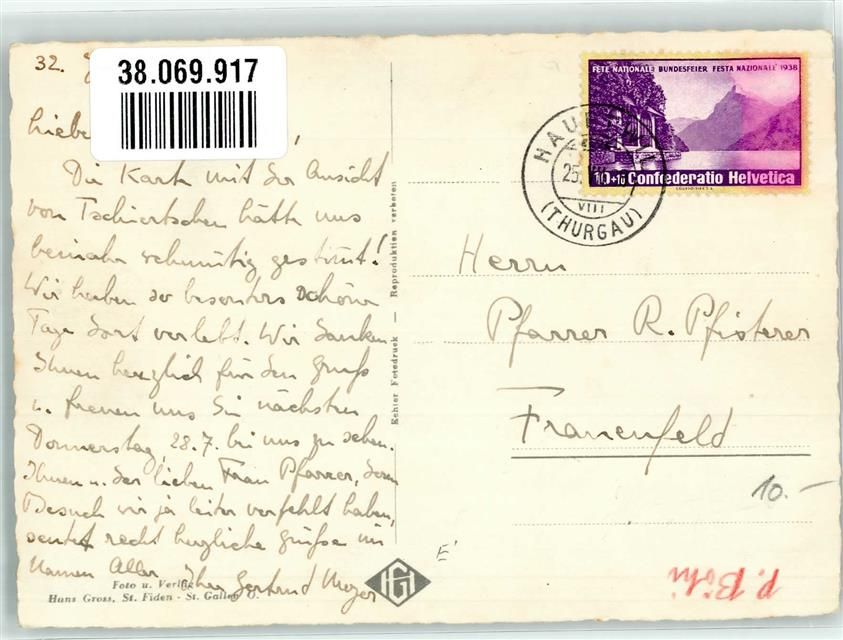 32.
38.069.917
Liebe ,
Die Karte mit der Ansicht
von Tschiertschen hätte uns
beinahe wehmütig gestimmt!
Wir haben so besonders schöne
Tage dort verlebt. Wir danken
Ihnen herzlich für den Gruss
u. freuen uns Sie nächsten
Donnerstag, 28.7. bei uns zu sehen.
Ihnen u. der lieben Frau Pfarrer, deren
Besuch wir ja leider verfehlt haben,
sendet recht herzliche Grüsse im
Namen Aller Ihre Gertrud Meyer
Foto u. Verlag
Hans Gross, St. Fiden - St. Gallen O.
HG
Echter Fotodruck — Reproduktion verboten
FETE NATIONALE BUNDESFEIER FESTA NAZIONALE 1938
10+10 Confoederatio Helvetica
25.
VIII
(THURGAU)
Herrn
Pfarrer R. Pfisterer
Frauenfeld
10.-
E'